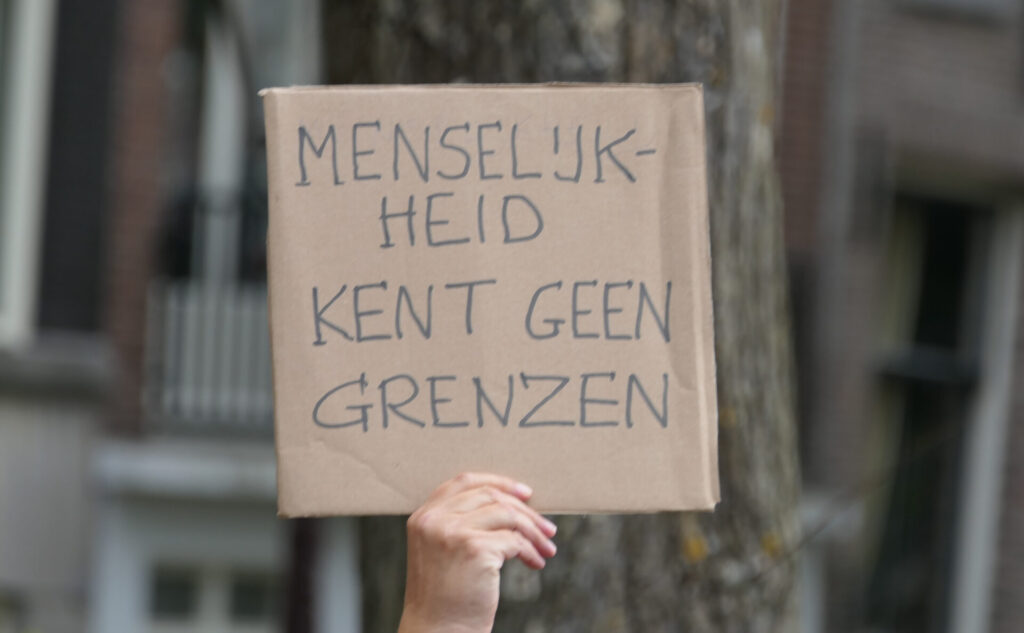 MENSELIJK-
HEID
KENT GEEN
GRENZEN